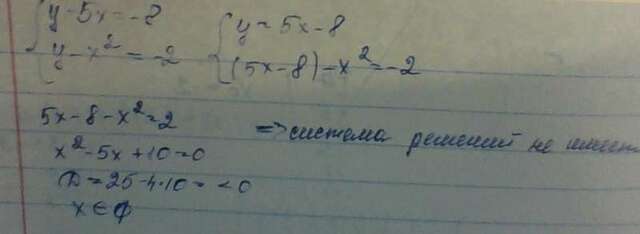 { y-5x=-8
y-x²=-2
{ y=5x-8
(5x-8)-x²=-2
5x-8-x²=2
=> система решений не имеет
x²-5x+10=0
D=25-4·10=<0
x∈∅